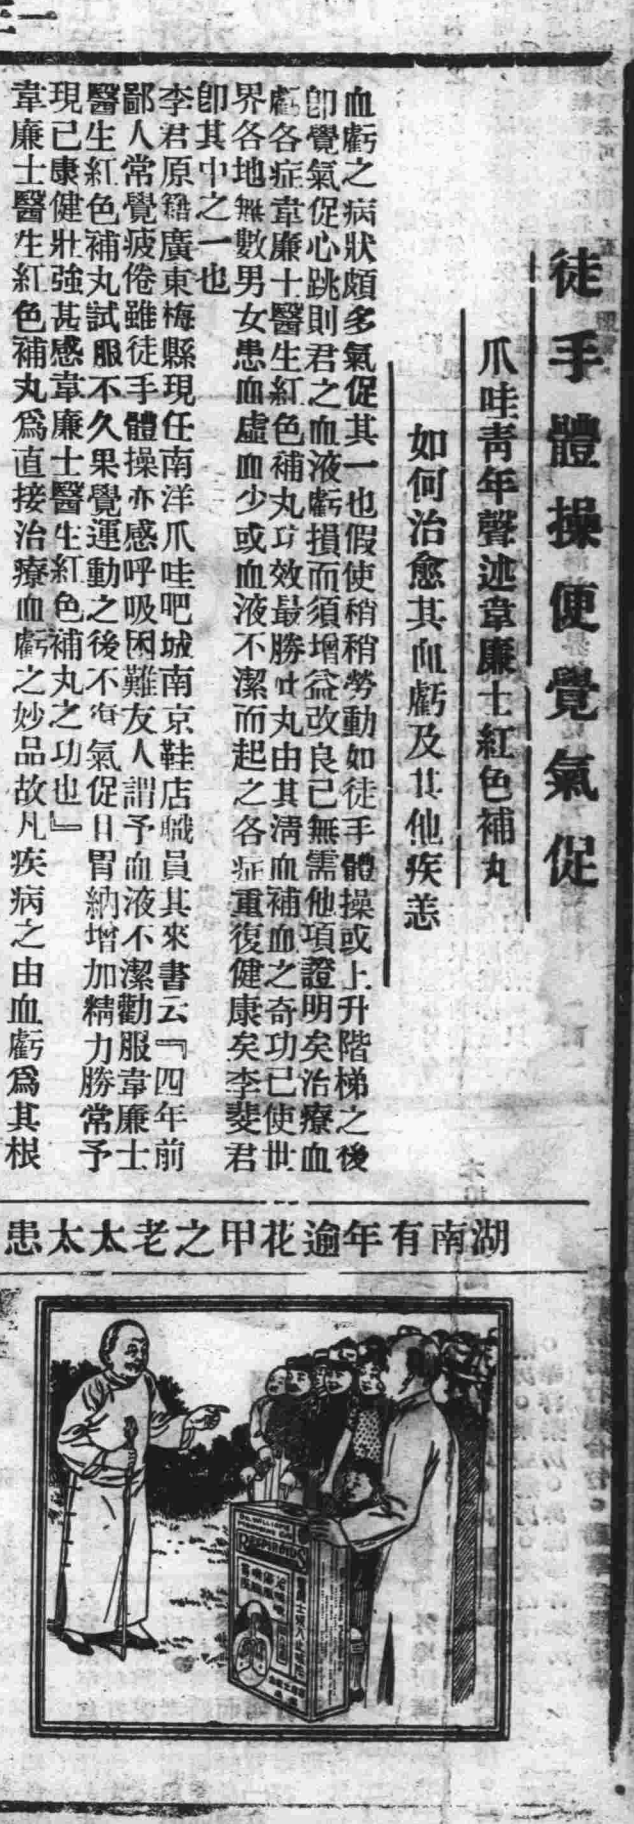 徒手體操便覺氣促
爪哇靑年聲述韋廉士紅色補丸
如何治愈其血虧及其他疾恙
血虧之病狀頗多氣促其一也假使稍稍勞動如徒手體操或上升階梯之後
卽覺氣促心跳則君之血液虧損而須增益改良已無需他項證明矣治療血
虧各症韋廉士醫生紅色補丸功效最勝此丸由其淸血補血之奇功已使世
界各地無數男女患血虛血少或血液不潔而起之各症重復健康矣李斐君
卽其中之一也
李君原籍廣東梅縣現任南洋爪哇吧城南京鞋店職員其來書云『四年前
鄙人常覺疲倦雖徒手體操亦感呼吸困難友人謂予血液不潔勸服韋廉士
醫生紅色補丸試服不久果覺運動之後不復氣促且胃納增加精力勝常予
現已康健壯強甚感韋廉士醫生紅色補丸之功也』
韋廉士醫生紅色補丸爲直接治療血虧之妙品故凡疾病之由血虧爲其根
湖南有年逾花甲之老太太患
DR. WILLIAMS
RESPIROIDS